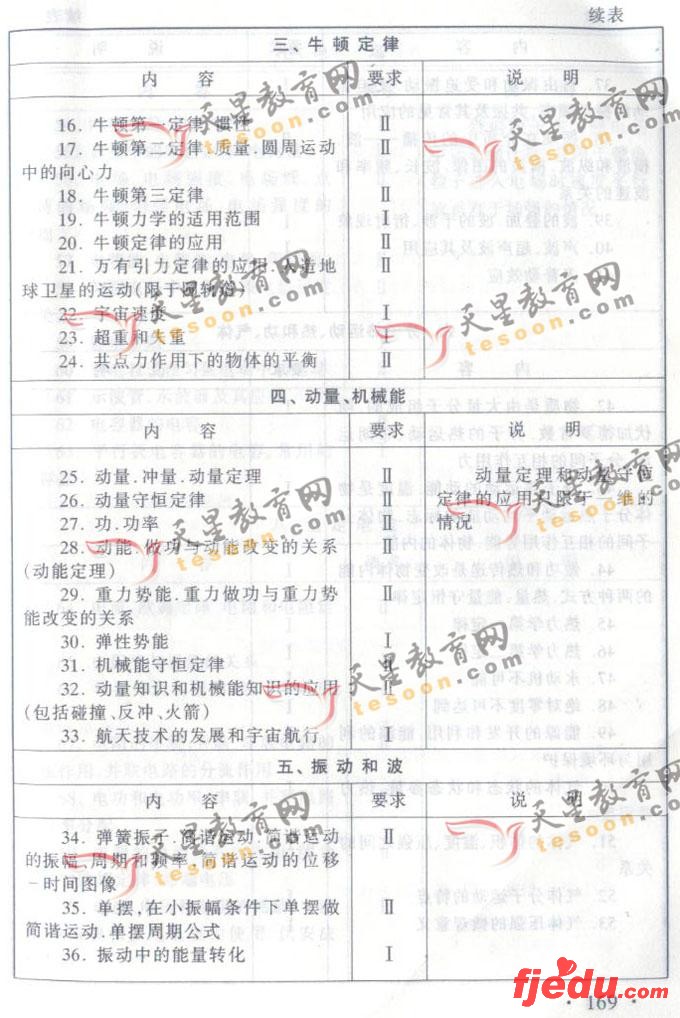 续表
三、牛顿定律
内 容 要求 说 明
16. 牛顿第一定律.惯性 Ⅱ
17. 牛顿第二定律.质量.圆周运动 Ⅱ
中的向心力
18. 牛顿第三定律 Ⅱ
19. 牛顿力学的适用范围 Ⅰ
20. 牛顿定律的应用 Ⅱ
21. 万有引力定律的应用.人造地 Ⅱ
球卫星的运动(限于圆轨道)
22. 宇宙速度 Ⅰ
23. 超重和失重 Ⅰ
24. 共点力作用下的物体的平衡 Ⅱ
四、动量、机械能
内 容 要求 说 明
25. 动量.冲量.动量定理 Ⅱ 动量定理和动量守恒
26. 动量守恒定律 Ⅱ 定律的应用只限于一维的
27. 功.功率 Ⅱ 情况
28. 动能.做功与动能改变的关系 Ⅱ
(动能定理)
29. 重力势能.重力做功与重力势 Ⅱ
能改变的关系
30. 弹性势能 Ⅰ
31. 机械能守恒定律 Ⅱ
32. 动量知识和机械能知识的应用 Ⅱ
(包括碰撞、反冲、火箭)
33. 航天技术的发展和宇宙航行 Ⅰ
五、振动和波
内 容 要求 说 明
34. 弹簧振子.简谐运动.简谐运动 Ⅱ
的振幅、周期和频率.简谐运动的位移
-时间图像
35. 单摆,在小振幅条件下单摆做 Ⅱ
简谐运动.单摆周期公式
36. 振动中的能量转化 Ⅰ
天星教育网
tesoon.com
天星教育网
tesoon.com
天星教育网
tesoon.com
天星教育网
tesoon.com
天星教育网
tesoon.com
天星教育网
tesoon.com
天星教育网
tesoon.com
天星教育网
tesoon.com
fjedu.com
· 169 ·